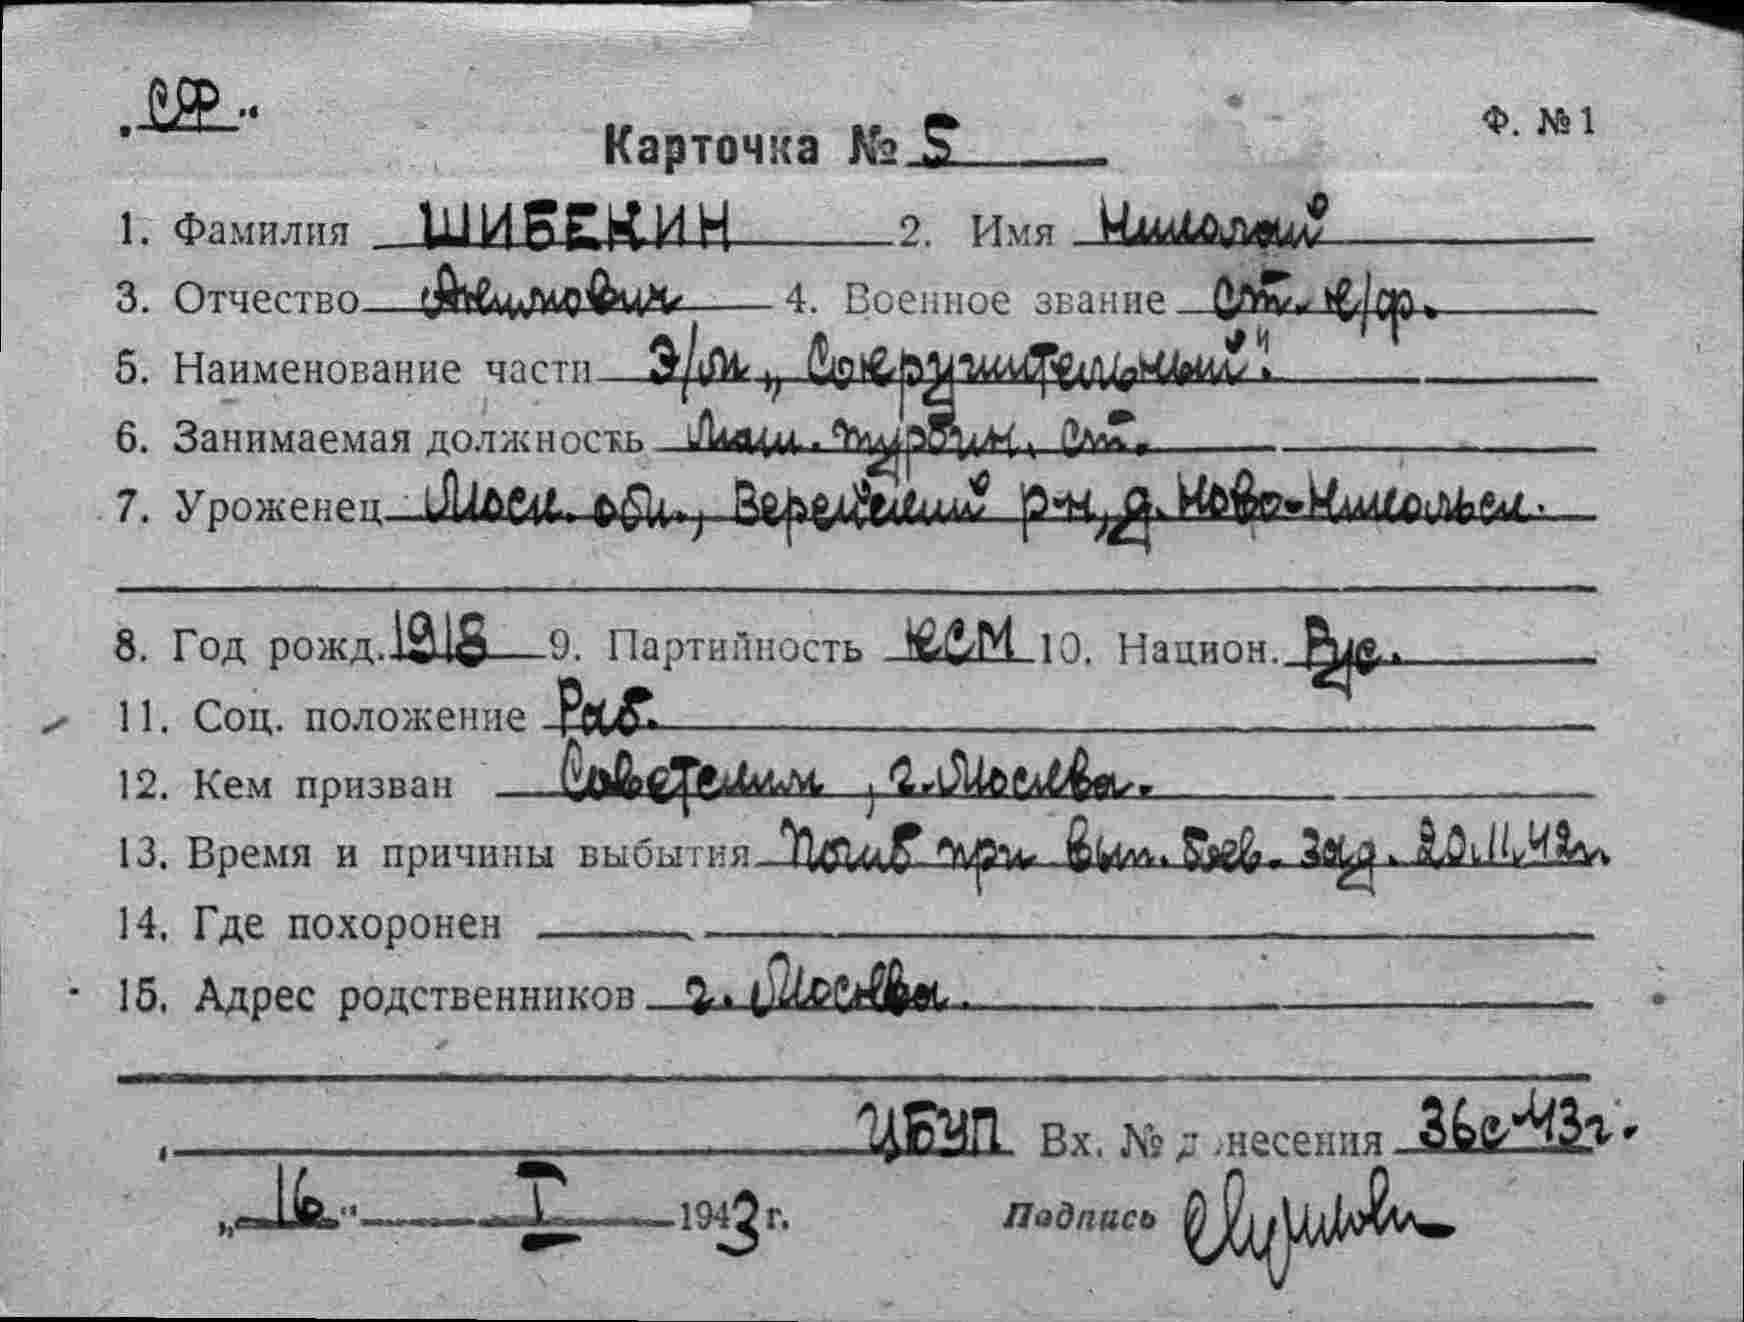 „СФ“
Ф. № 1
Карточка № 5
1. Фамилия ШИБЕКИН 2. Имя Николай
3. Отчество Акимович 4. Военное звание ст. к/ф.
5. Наименование части Э/м „Сокрушительный“.
6. Занимаемая должность Маш. турбин. ст.
7. Уроженец Моск. обл., Верейский р-н, д. Ново-Никольск.
8. Год рожд. 1918 9. Партийность КСМ 10. Национ. Рус.
11. Соц. положение Раб.
12. Кем призван Советским, г. Москва.
13. Время и причины выбытия Погиб при вып. боев. зад. 20.11.42г.
14. Где похоронен
15. Адрес родственников г. Москва.
ЦБУП Вх. № д несения 36с-43г.
„16“ I 1943 г. Подпись